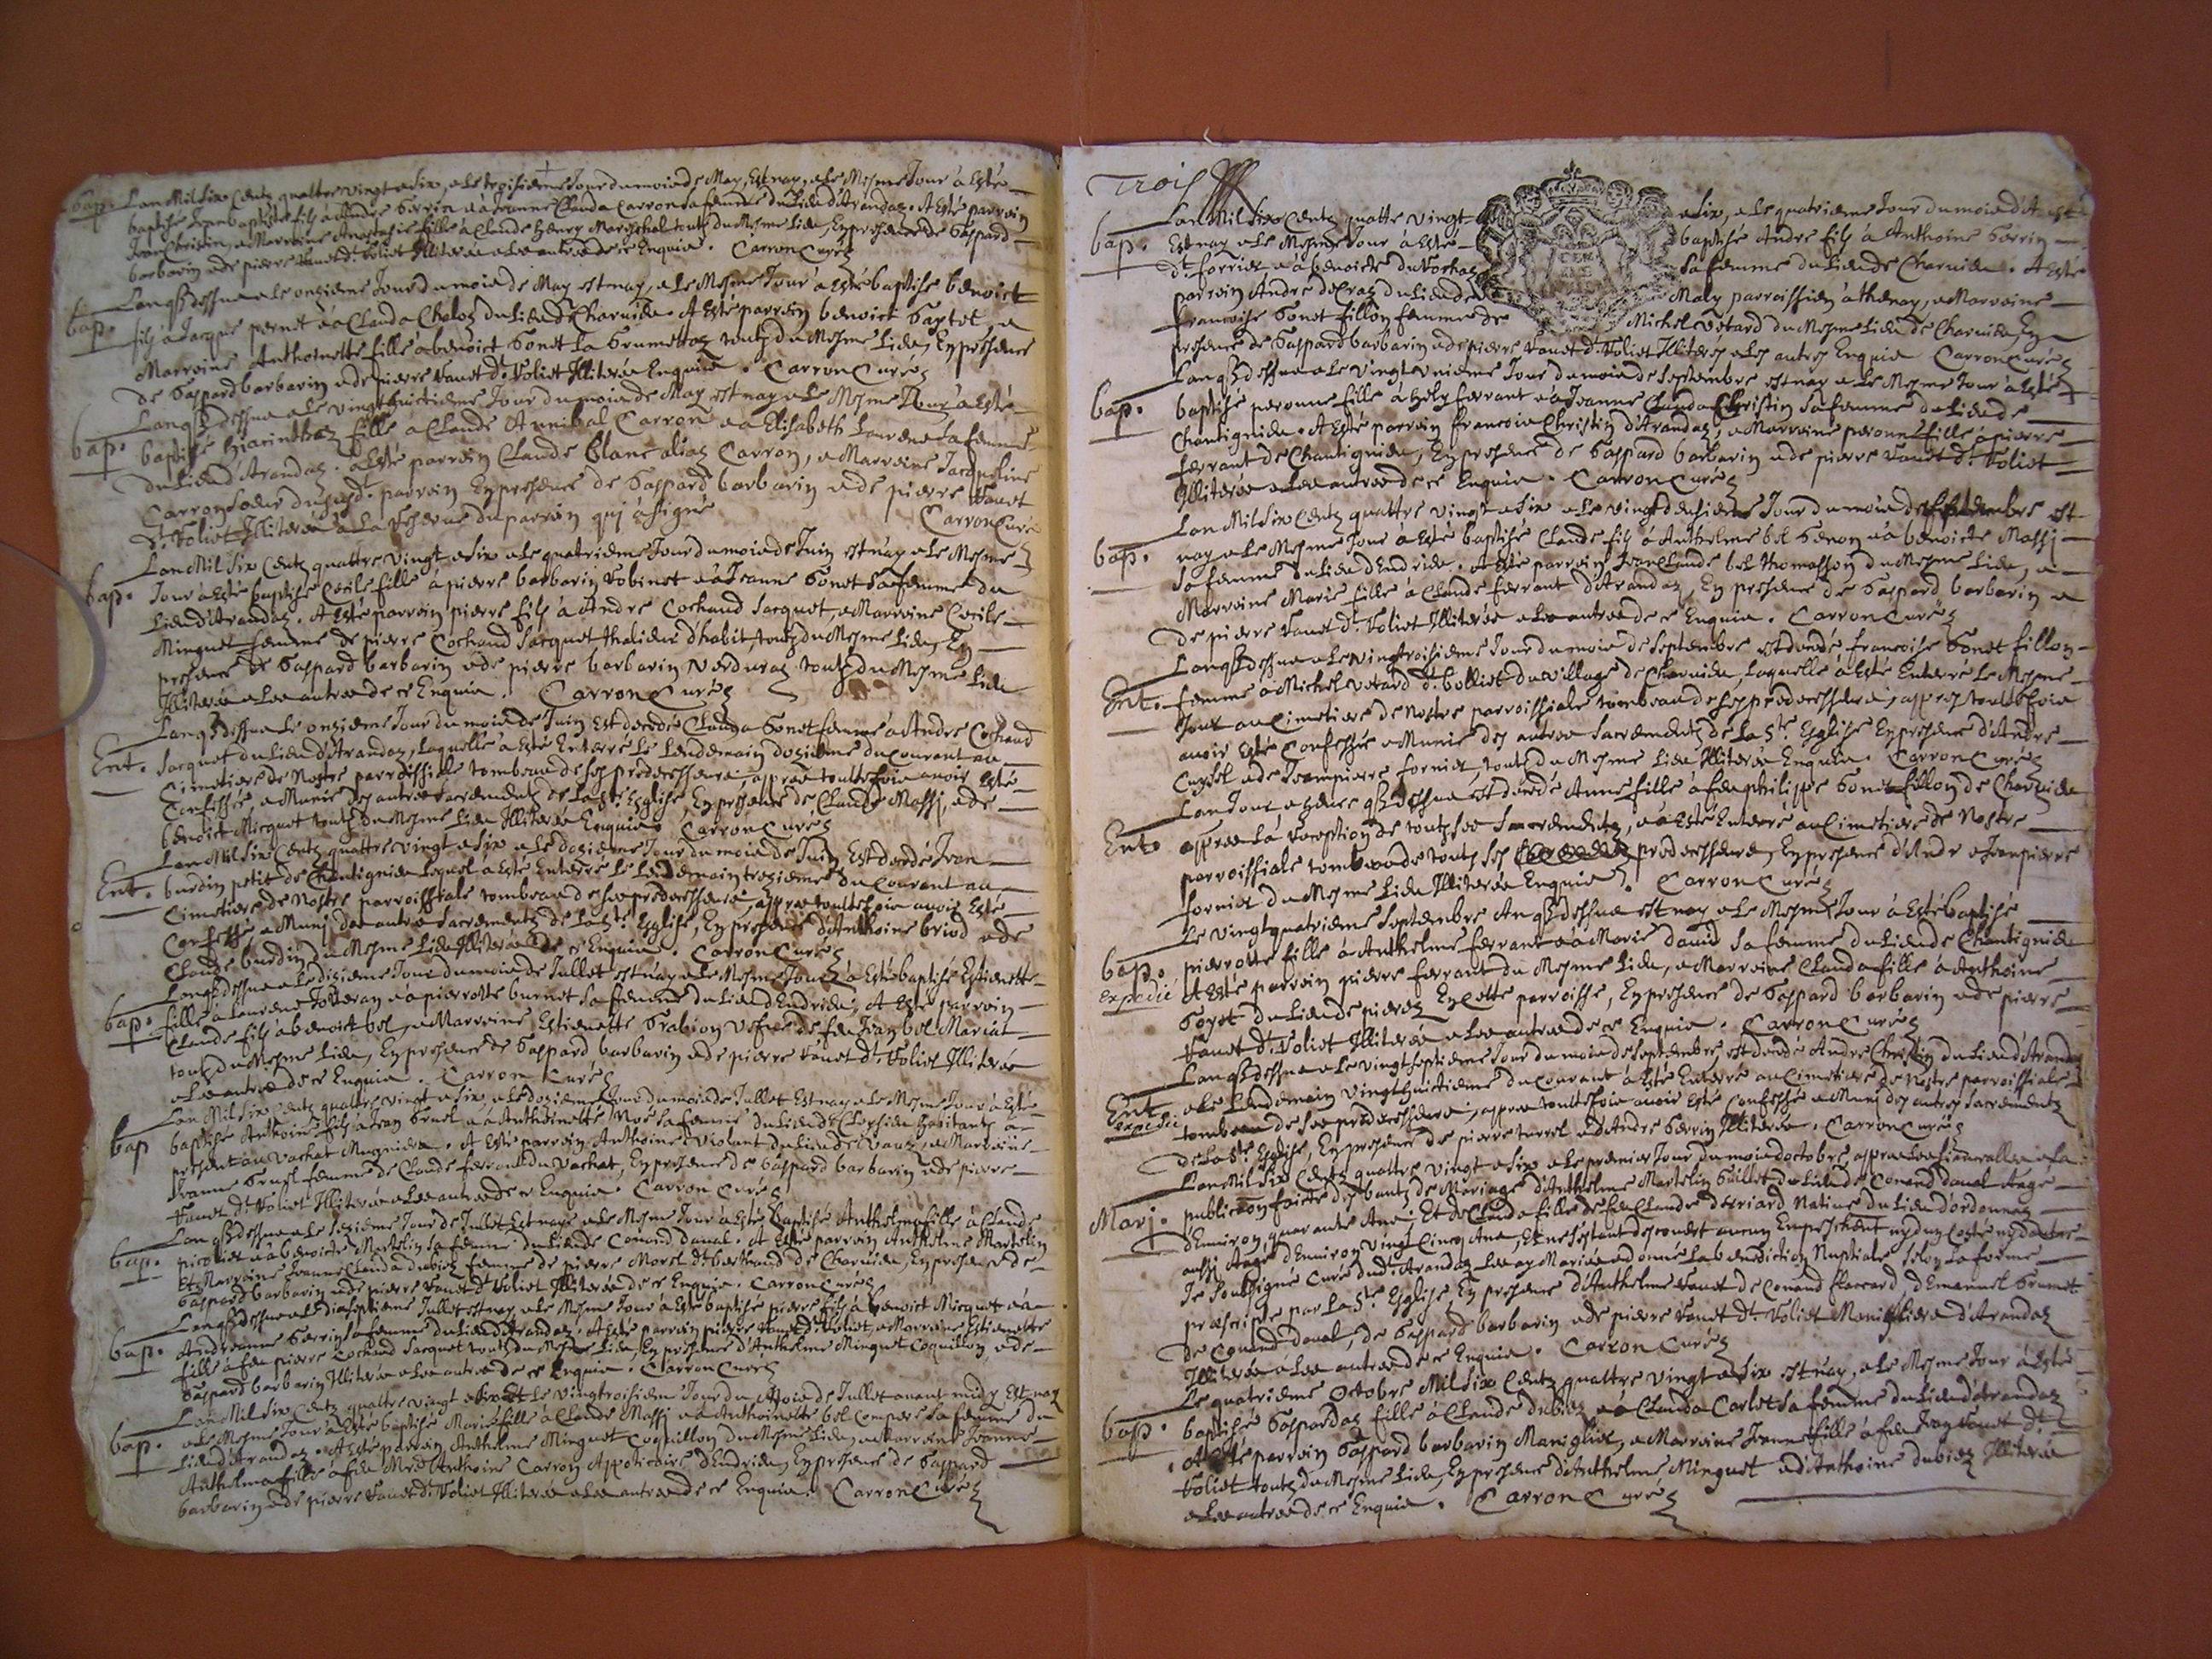 bap. Lan Mil Six Centz quattre vingt e Six, e Le troisieme Jour du mois de May, Est nay, e Le Mesme Jour à Esté
baptisé Jean baptiste fils à Andre Gerrin e à Jeanne Clauda Carron sa femme du Lieu d'Arandaz. A Esté parrein
Jean Christin, e Marreine Anastasie fille à Claude Henry Mareschal touts du Mesme Lieu, En presence de Gaspard
barbarin e de pierre Vanet dt. Voliet Illiterés e Les autres de ce Enquis. Carron Curé
bap. Lan qs. dessus e Le onzieme Jour du mois de May est nay, e Le Mesme Jour à Esté baptisé benoict
fils à Jacque pernet e à Clauda Chaloz du Lieu de Charuieu. A Esté parrein benoict e
Marreine Anthoinette fille à benoict Gonet La touts du Mesme Lieu, En presence
de Gaspard barbarin e de pierre Vanet dt. Voliet Illiterés Enquis. Carron Curé
bap. Lan qs. dessus e Le vingthuictieme Jour du mois de May est nay e Le Mesme Jour à Esté
baptisé fille à Claude Annibal Carron e à Elisabeth Laurens sa femme
du Lieu d'Arandaz. à Esté parrein Claude blanc alias Carron, e Marreine Jacqueline
Carron soeur dud. parrein En presence de Gaspard barbarin e de pierre Vanet
dt. Voliet Illiterés e La du parrein qui à signé Carron Curé
bap. Lan Mil Six Centz quattre vingt e Six e Le quatrieme Jour du mois de Juin est nay e Le Mesme
Jour à Esté baptisé Cecile fille à pierre barbarin Robinet e à Jeanne Gonet sa femme du
Lieu d'Arandaz. A Esté parrein pierre fils à Andre Cochaud Jacquet, e Marreine Cecile
Minguet femme de pierre Cochaud Jacquet d'habit, touts du Mesme Lieu, En
presence de Gaspard barbarin e de pierre barbarin Verduraz touts du Mesme Lieu
Illiterés e Les autres de ce Enquis. Carron Curé
Ent. Lan qs. dessus e Le onzieme Jour du mois de Juin Est decedé Clauda Gonet femme à Andre Cochaud
Jacquet du Lieu d'Arandaz, Laquelle à Esté Enterré Le Lendemain dozieme du Courant au
Cimetiere de Nostre parroissiale tombeau de ses predecesseurs, apprés touttefois avoir Esté
Confessée, e Munie des autres sacrementz de La Ste. Esglise, En presence de Claude Massi, e de
benoict Micquet touts du Mesme Lieu Illiterés Enquis. Carron Curé
Ent. Lan Mil Six Centz quattre vingt e Six e Le dozieme Jour du mois de Juin Est decedé Jean
burdin petit de Chantignieu Lequel à Esté Enterré Le Lendemain trezieme du Courant au
Cimetiere de Nostre parroissiale tombeau de ses predecesseurs, apprés touttefois avoir Esté
Confessé, e Muni des autres sacrementz de La Ste. Esglise, En presence d'Anthoine briod e de
Claude burdin du Mesme Lieu Illiterés de ce Enquis. Carron Curé
bap. Lan qs. dessus e Le dixieme Jour du mois de Jullet est nay e Le Mesme Jour à Esté baptisé Estienette
fille à Laurens e à pierrotte burnet sa femme du Lieu d'Endrieu. A Esté parrein
Claude fils à benoict bel, e Marreine Estienette Grabion Vefve de feu Jean bel Mariat
touts du Mesme Lieu, En presence de Gaspard barbarin e de pierre Vanet dt. Voliet Illiterés
e Les autres de ce Enquis. Carron Curé
bap Lan Mil Six Centz quattre vingt e Six, e Le dozieme Jour du mois de Jullet Est nay e Le Mesme Jour à Esté
baptisé Anthoine fils à Jean e à Anthoinette sa femme du Lieu de habitants à
present au Vachat. A Esté parrein Anthoine Violant du Lieu de Vaux, e Marreine
Jeanne femme de Claude ferrand du Vachat, En presence de Gaspard barbarin e de pierre
Vanet dt. Voliet Illiterés e Les autres de ce Enquis. Carron Curé
bap. Lan qs. dessus e Le sezieme Jour de Jullet Est nay e Le Mesme Jour à Esté baptisé Anthelme fille à Claude
e à benoicte Martelin sa femme du Lieu de Conand daval. A Esté parrein Anthelme Martelin
Et Marreine Jeanne Clauda dubiez femme de pierre Morel dt. berthrand de Charuieu, En presence de
Gaspard barbarin e de pierre Vanet dt. Voliet Illiterés de ce Enquis. Carron Curé
bap. Lan qs. dessus e Le dixseptieme Jullet est nay e Le Mesme Jour à Esté baptisé pierre fils à benoict Micquet e à
Andreanne Gerrin sa femme du Lieu d'Arandaz. A Esté parrein pierre Vanet dt. Voliet, e Marreine Estienette
fille à feu pierre Cochaud Jacquet touts du Mesme Lieu, En presence d'Anthelme Minguet Coquillon, e de
Gaspard barbarin Illiterés e Les autres de ce Enquis. Carron Curé
bap. Lan Mil Six Centz quattre vingt e Six Et Le vingtroisieme Jour du Mois de Jullet avant midy Est nay
e Le Mesme Jour à Esté baptisé Marie fille à Claude Massi e à Anthoinette bel Compere sa femme du
Lieu d'Arandaz. A Esté parrein Anthelme Minguet Coquillon du Mesme Lieu, e Marreine Jeanne
Anthelme fille à feu Anthoine Carron Appoticaire d'Endrieu, En presence de Gaspard
barbarin e de pierre Vanet dt. Voliet Illiterés e Les autres de ce Enquis. Carron Curé
Trois
bap. Lan Mil Six Centz quatte vingt e Six, e Le quatrieme Jour du mois d'Aoust
Est nay e Le Mesme Jour à Esté baptisé Andre fils à Anthoine Gerrin
dt. forrier e à benoicte du Vochaz sa femme du Lieu de Charuieu. A Esté
parrein Andre de Craz du Lieu de Maly parroissien à thenay, e Marreine
francoise Gonet fillon femme de Michel Votard du Mesme Lieu de Charuieu, En
presence de Gaspard barbarin e de pierre Vanet dt. Voliet Illiterés e Les autres Enquis Carron Curé
bap. Lan qs. dessus e Le vingt vnieme Jour du mois de septembre est nay e Le Mesme Jour à Esté
baptisé peronne fille à Hely ferrant e à Jeanne Clauda Christin sa femme du Lieu de
Chantignieu. A Esté parrein francois Christin d'Arandaz, e Marreine peronne fille à pierre
ferrant de Chantignieu, En presence de Gaspard barbarin e de pierre Vanet dt. Voliet
Illiterés e Les autres de ce Enquis. Carron Curé
bap. Lan Mil Six Centz quattre vingt e Six e Le vingt deusieme Jour du mois de septembre est
nay e Le Mesme Jour à Esté baptisé Claude fils à Anthelme bel Genon e à benoicte Massi
sa femme du Lieu d'Endrieu. A Esté parrein Jean Claude bel thomasson du Mesme Lieu, e
Marreine Marie fille à Claude ferrant d'Arandaz, En presence de Gaspard barbarin e
de pierre Vanet dt. Voliet Illiterés e Les autres de ce Enquis. Carron Curé
Ent. Lan qs. dessus e Le vingtroisieme Jour du mois de septembre est decedé francoise Gonet fillon
femme à Michel Votard dt. bolliet du village de Charuieu, Laquelle à Esté Enterré Le Mesme
Jour au Cimetiere de Nostre parroissiale tombeau de ses predecesseurs, apprés touttefois
avoir Esté Confessée e Munie des autres sacrementz de La Ste. Esglise En presence d'Andre
e de Jeanpierre forrier, touts du Mesme Lieu Illiterés Enquis. Carron Curé
Ent. Lan Jour e heure qs. dessus est decedé Anne fille à feu philippe Gonet fillon de Charuieu
apprés La reception de touts ses sacrementz, e à Esté Enterré au Cimetiere de Nostre
parroissiale tombeau de touts ses predecesseurs, En presence d'Andre e Jeanpierre
forrier du Mesme Lieu Illiterés Enquis. Carron Curé
bap. Le vingtquatrieme septembre An qs. dessus est nay e Le Mesme Jour à Esté baptisé
expedié pierrotte fille à Anthelme ferrant e à Marie david sa femme du Lieu de Chantignieu
A Esté parrein pierre ferrant du Mesme Lieu, e Marreine Clauda fille à Anthoine
Goyet du Lieu de pierez En Cette parroisse, En presence de Gaspard barbarin e de pierre
Vanet dt. Voliet Illiterés e Les autres de ce Enquis. Carron Curé
Ent. Lan qs. dessus e Le vingtseptieme Jour du mois de septembre, est decedé Andre Christin du Lieu d'Arandaz
expedié e Le Lendemain vingthuictieme du Courant à Esté Enterré au Cimetiere de Nostre parroissiale
tombeau de ses predecesseurs, apprés touttefois avoir Esté Confessé e Muni des autres sacrementz
de La Ste. Esglise, En presence de pierre turrel e d'Andre Gerrin Illiterés. Carron Curé
Marj. Lan Mil Six Centz quattre vingt e Six e Le premier Jour du mois d'octobre, apprés Les fiancialles e La
publication faicte des bantz de Mariage d'Anthelme Martelin Guillet du Lieu de Conand daval Aagé
d'Environ quarante Ans, Et de Clauda fille de feu Claude decriard Native du Lieu d'ordonnaz
aussi Aagé d'Environ vingt Cincq Ans, Et ne s'estant descouvert aucun Empeschemt. ny d'un Costé ny d'autre
Je soubsigné Curé dud. Arandaz Les ay Mariés e donné La benediction Nuptiale selon La forme
prescripte par La Ste. Esglise, En presence d'Anthelme Vanet de Conand flaccard, d'Emanuel brunet
de Conand daval, de Gaspard barbarin e de pierre Vanet dt. Voliet Manigliers d'Arandaz
Illiterés e Les autres de ce Enquis. Carron Curé
bap. Le quatrieme Octobre Mil Six Centz quattre vingt e Six est nay, e Le Mesme Jour à Esté
baptisé Gaspardaz fille à Claude dubiez e à Clauda Carlot sa femme du Lieu d'Arandaz
A Esté parrein Gaspard barbarin Maniglier, e Marreine Jeanne fille à feu Jean Vanet dt.
Voliet touts du Mesme Lieu, En presence d'Anthelme Minguet e d'Anthoine dubiez Illiterés
e Les autres de ce Enquis. Carron Curé